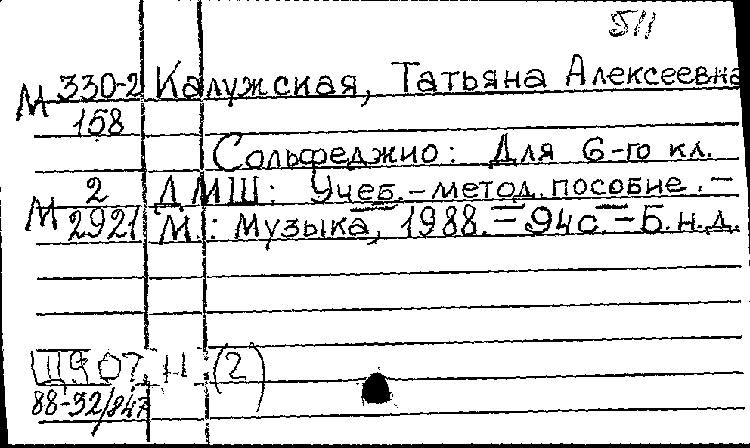 511
М 330-2 Калужская, Татьяна Алексеевна
158
Сольфеджио: Для 6-го кл.
М 2 ДМШ: Учеб.-метод. пособие. –
2921 М.: Музыка, 1988. – 94с. – Б.н.д.
Н (2)
88-92/847